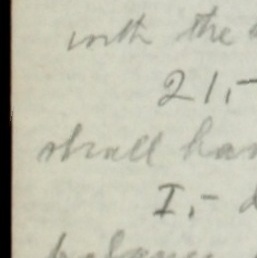 with the
21,-
shall ha
I,- d
balance